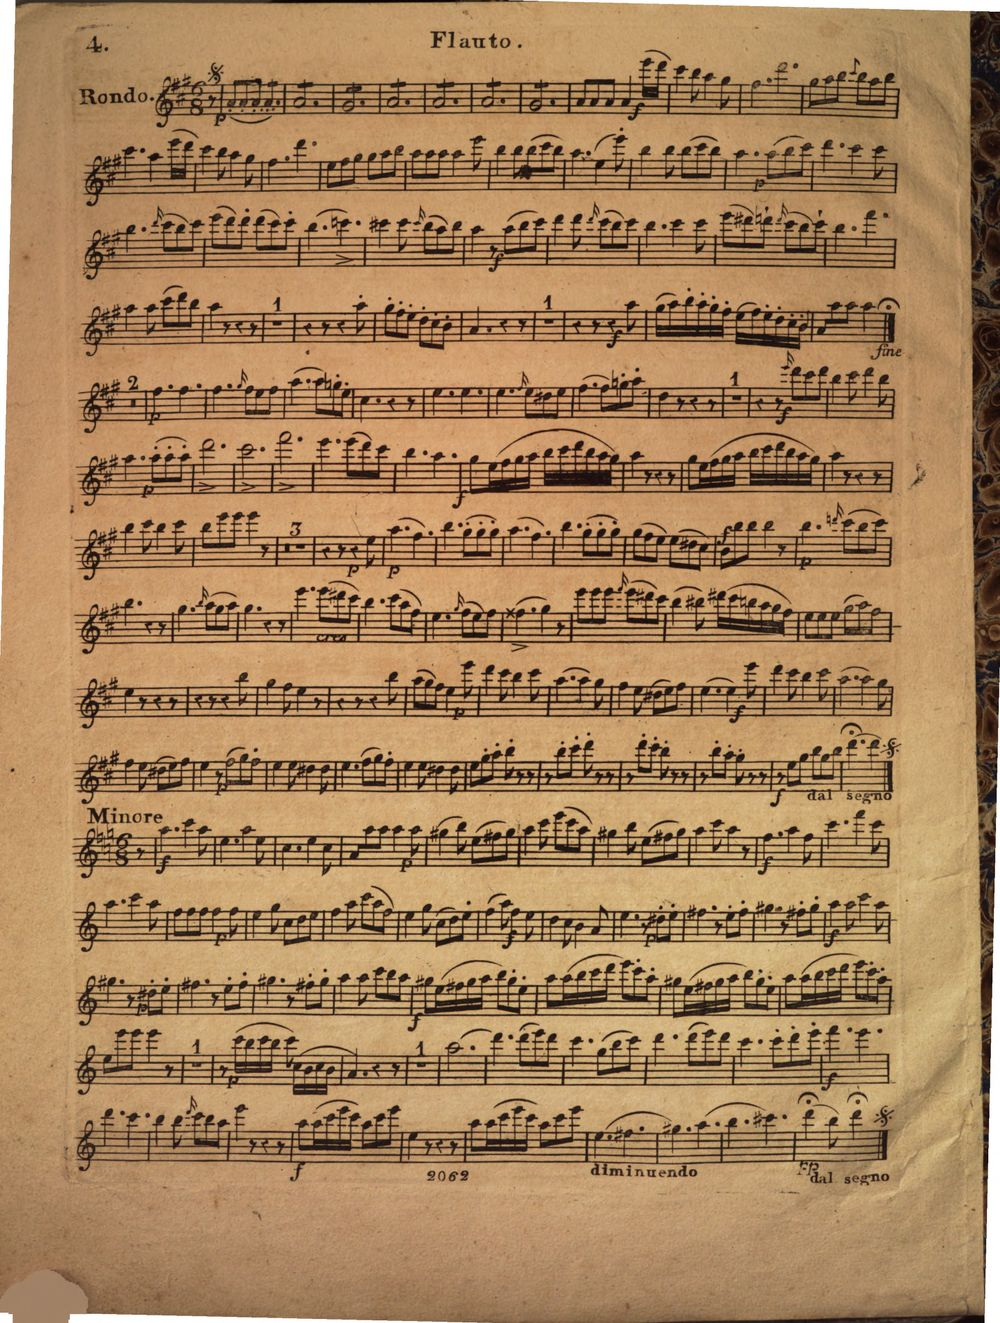 4.
Flauto.
Rondo.
6
8
p
f
p
f
1
1
f
fine
2
p
1
f
p
f
3
p
p
f
p
cres
p
f
p
f
dal segno
Minore
6
8
f
p
f
p
f
p
f
p
f
1
p
1
f
f
2062
diminuendo
FP
dal segno